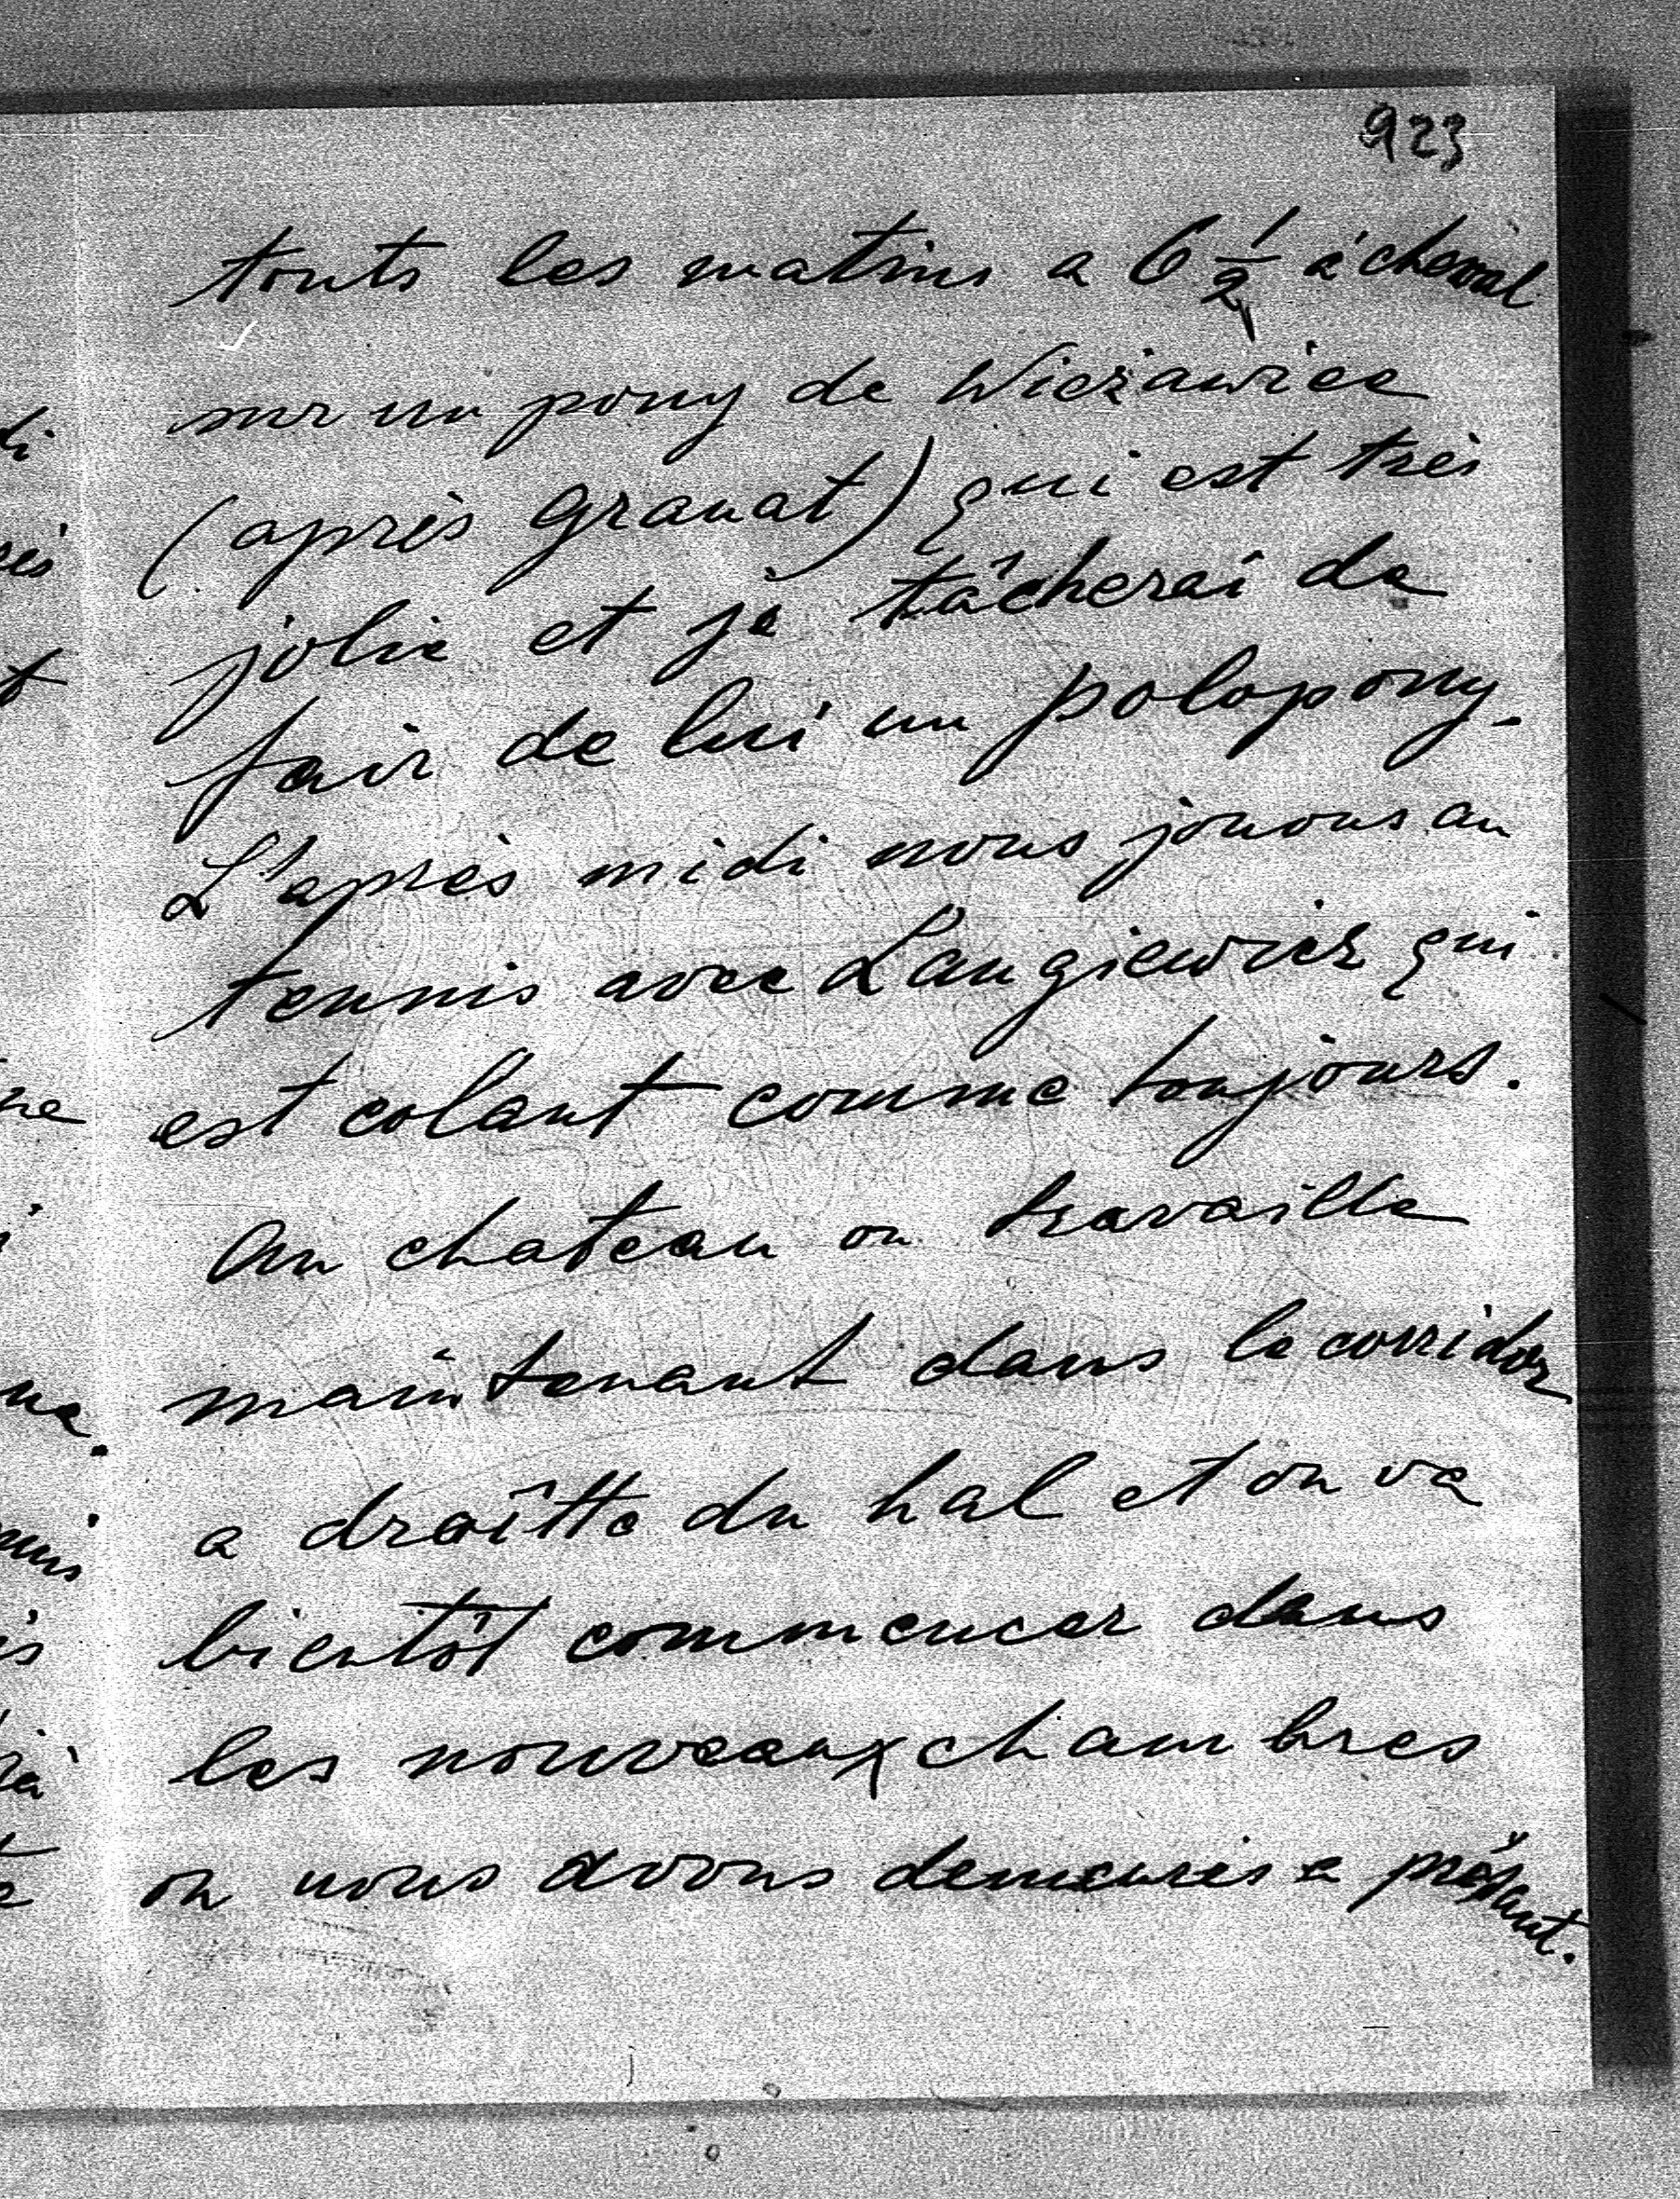 923
touts les matins a 6 1/2 à cheval
sur un pony de Wieżawice
(après Granat) qui est très
jolie et je tâcherai de
fair de lui un polopony.
L'après midi nous jouons au
tennis avec Langiewicz qui
est colant comme toujours.
Au chateau on travaille
maintenant dans le corridor
a droîtte du hal et on va
bientôt commencer dans
les nouveaux chambres
ou nous avons demeurés a présant.